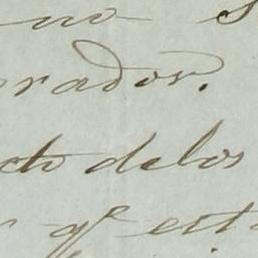 no s
rador.
cto delos
r qe esta